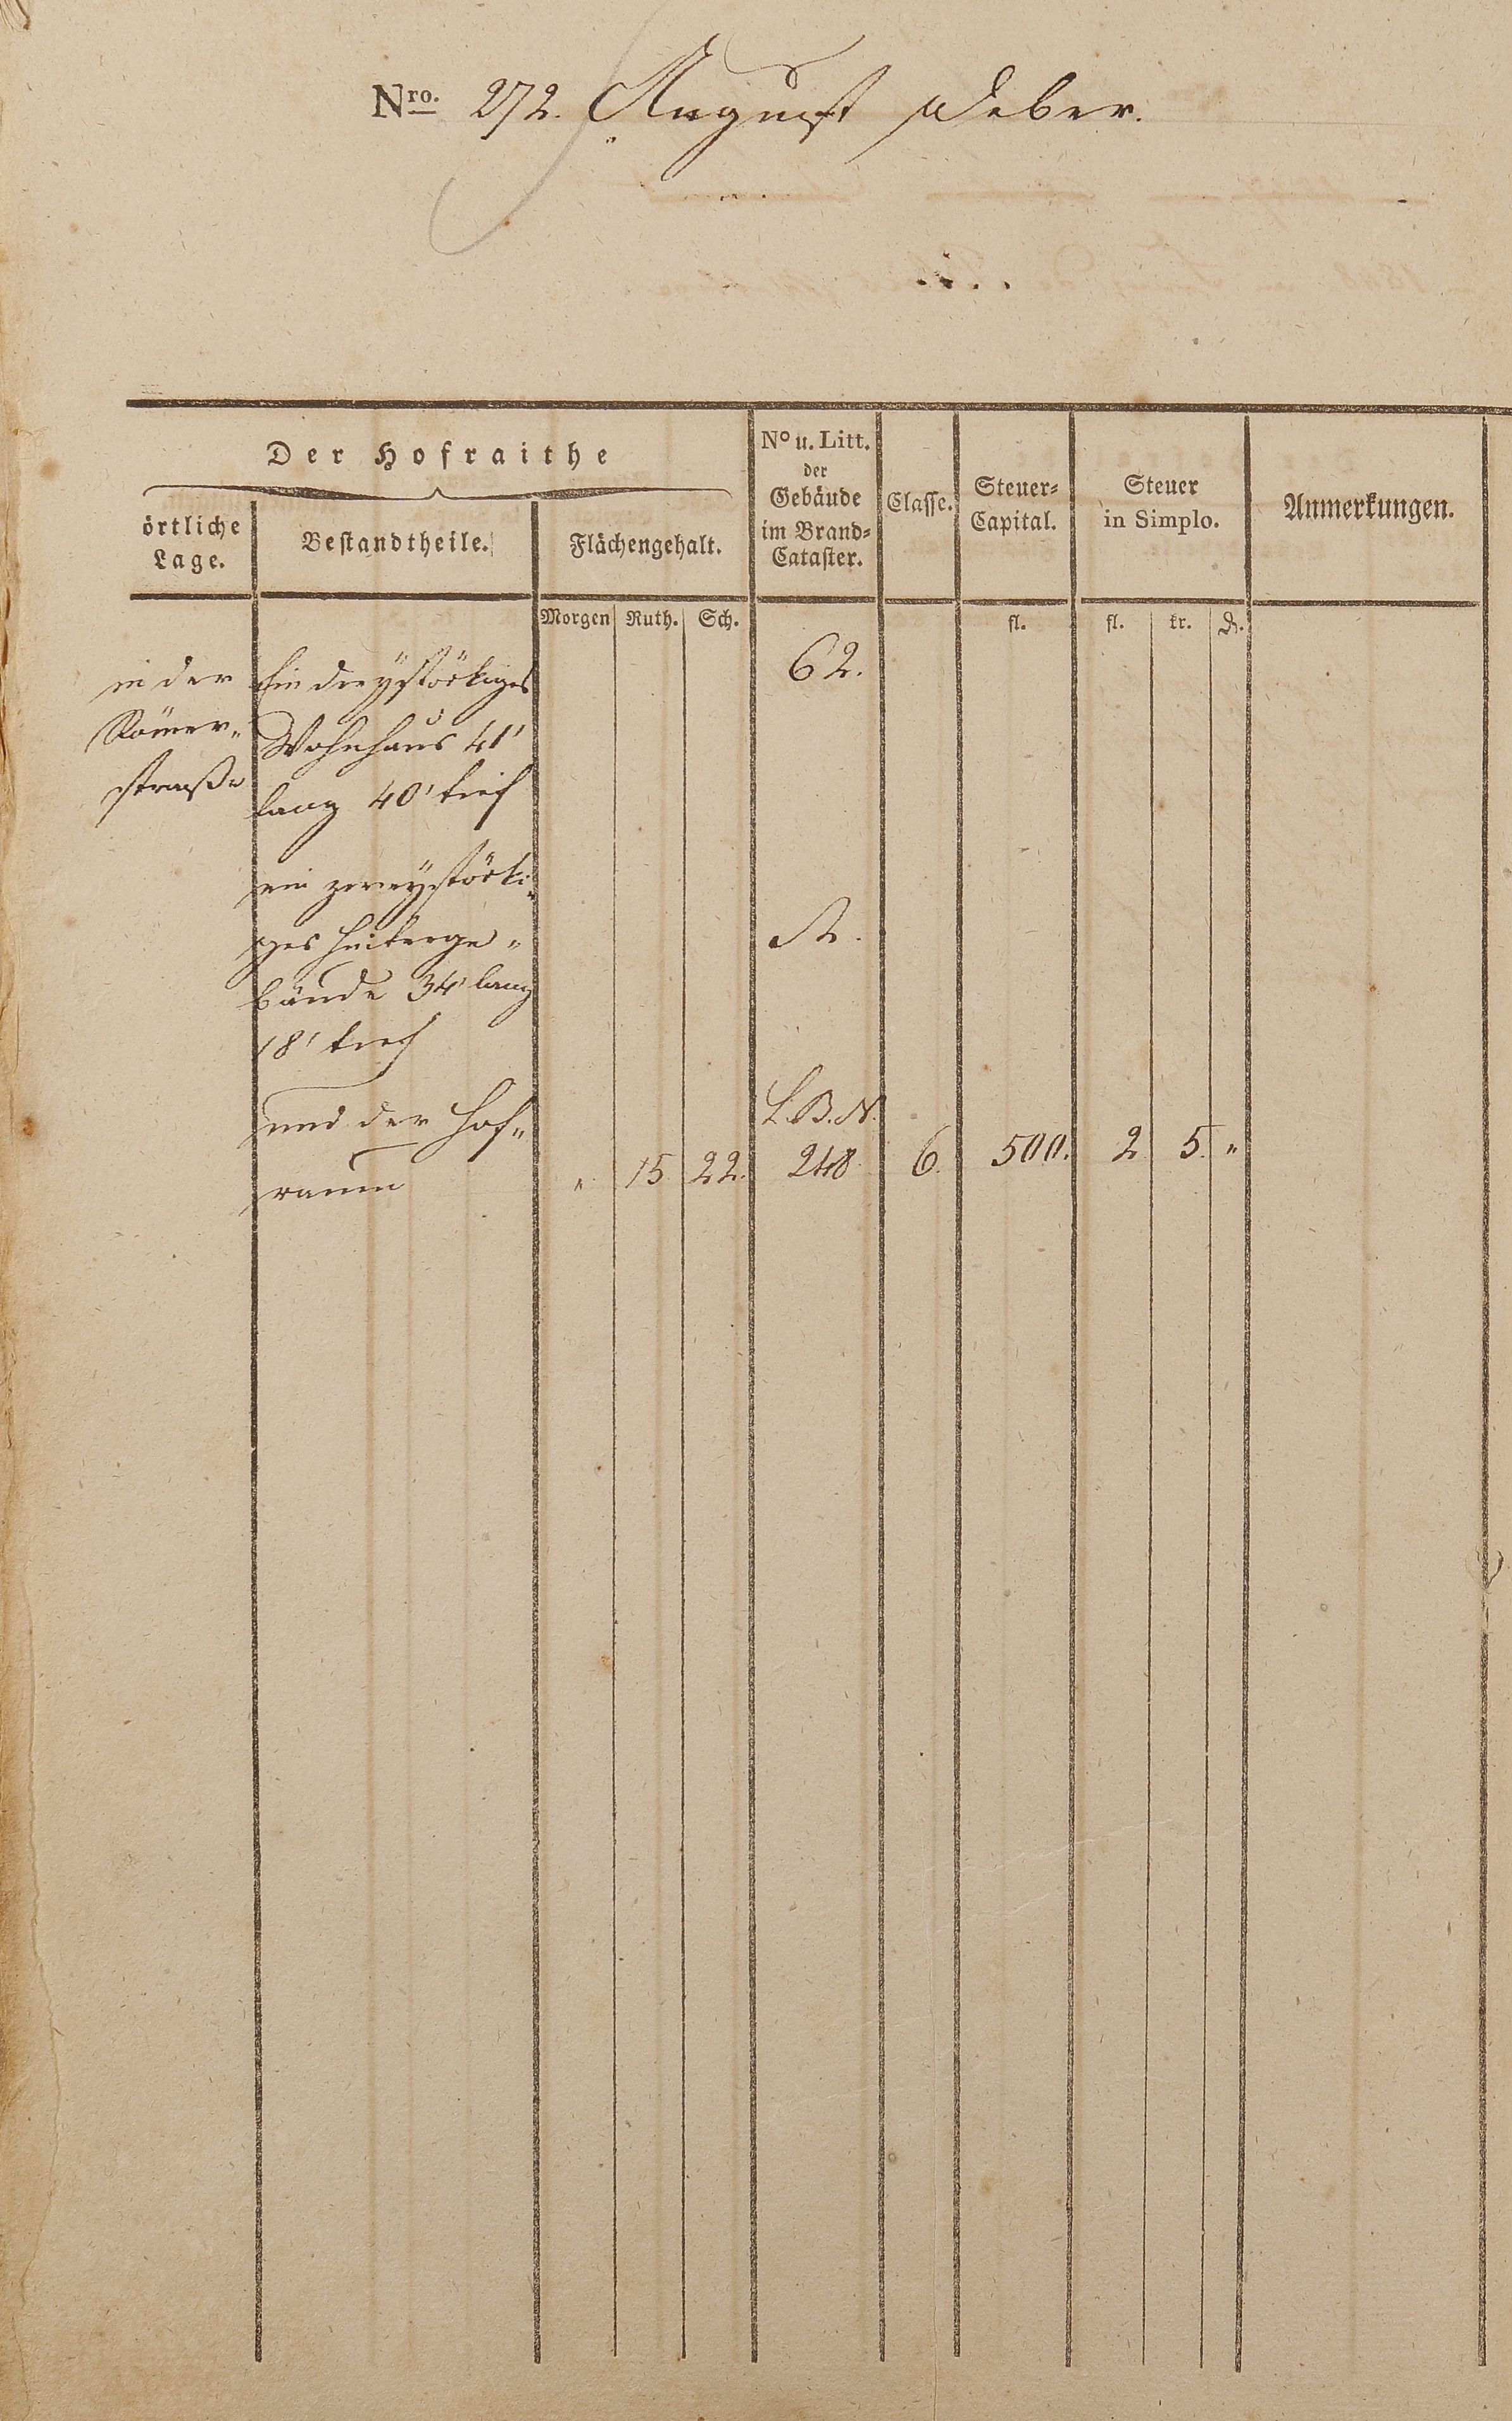 Nro. 272. August Weber.
Der Hofraithe
örtliche
Lage.
Bestandtheile.
Flächengehalt.
No u. Litt.
der
Gebäude
im Brand-
Cataster.
Classe.
Steuer-
Capital.
Steuer
in Simplo.
Anmerkungen.
Morgen Ruth. Sch.
fl.
fl. kr. ₰.
in der
Römer-
straße
Ein dreystöckiges
Wohnhaus 41'
lang 40' tief
62.
ein zweystöcki-
ges Hinterge-
bäude 34' lang
18' tief
A.
und der Hof-
raum
L.B.N.
" 15 22. 248 6. 500. 2 5. "